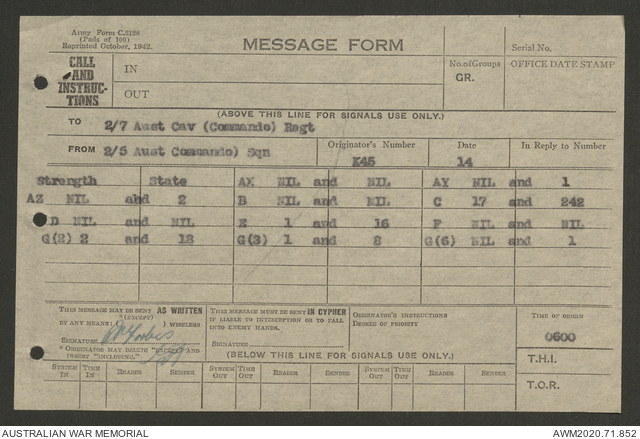 Army Form C.2128
(Pads of 100)
Reprinted October, 1942.
MESSAGE FORM
Serial No.
CALL AND INSTRUC-TIONS
IN
OUT
No. of Groups
GR.
OFFICE DATE STAMP
(ABOVE THIS LINE FOR SIGNALS USE ONLY.)
TO 2/7 Aust Cav (Commando) Regt
FROM 2/5 Aust Commando) Sqn
Originator's Number
K45
Date
14
In Reply to Number
Strength State AX NIL and NIL AY NIL and 1
AZ NIL and 2 B NIL and NIL C 17 and 242
D NIL and NIL E 1 and 16 F NIL and NIL
G(2) 2 and 18 G(3) 1 and 8 G(6) NIL and 1
THIS MESSAGE MAY BE SENT AS WRITTEN
(EXCEPT)
BY ANY MEANS ) WIRELESS
SIGNATURE
* ORIGINATOR MAY DELETE "EXCEPT" AND
INSERT "INCLUDING."
THIS MESSAGE MUST BE SENT IN CYPHER
IF LIABLE TO INTERCEPTION OR TO FALL
INTO ENEMY HANDS.
SIGNATURE
ORIGINATOR'S INSTRUCTIONS
DEGREE OF PRIORITY
TIME OF ORIGIN
0600
T.H.I.
T.O.R.
(BELOW THIS LINE FOR SIGNALS USE ONLY.)
SYSTEM IN TIME IN READER SENDER SYSTEM OUT TIME OUT READER SENDER SYSTEM OUT TIME OUT READER SENDER
AUSTRALIAN WAR MEMORIAL
AWM2020.71.852